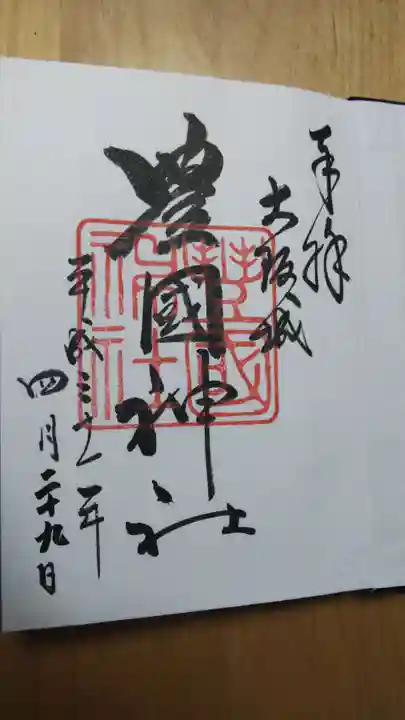 奉拝
大阪城
豊國神社
平成三十一年
四月二十九日